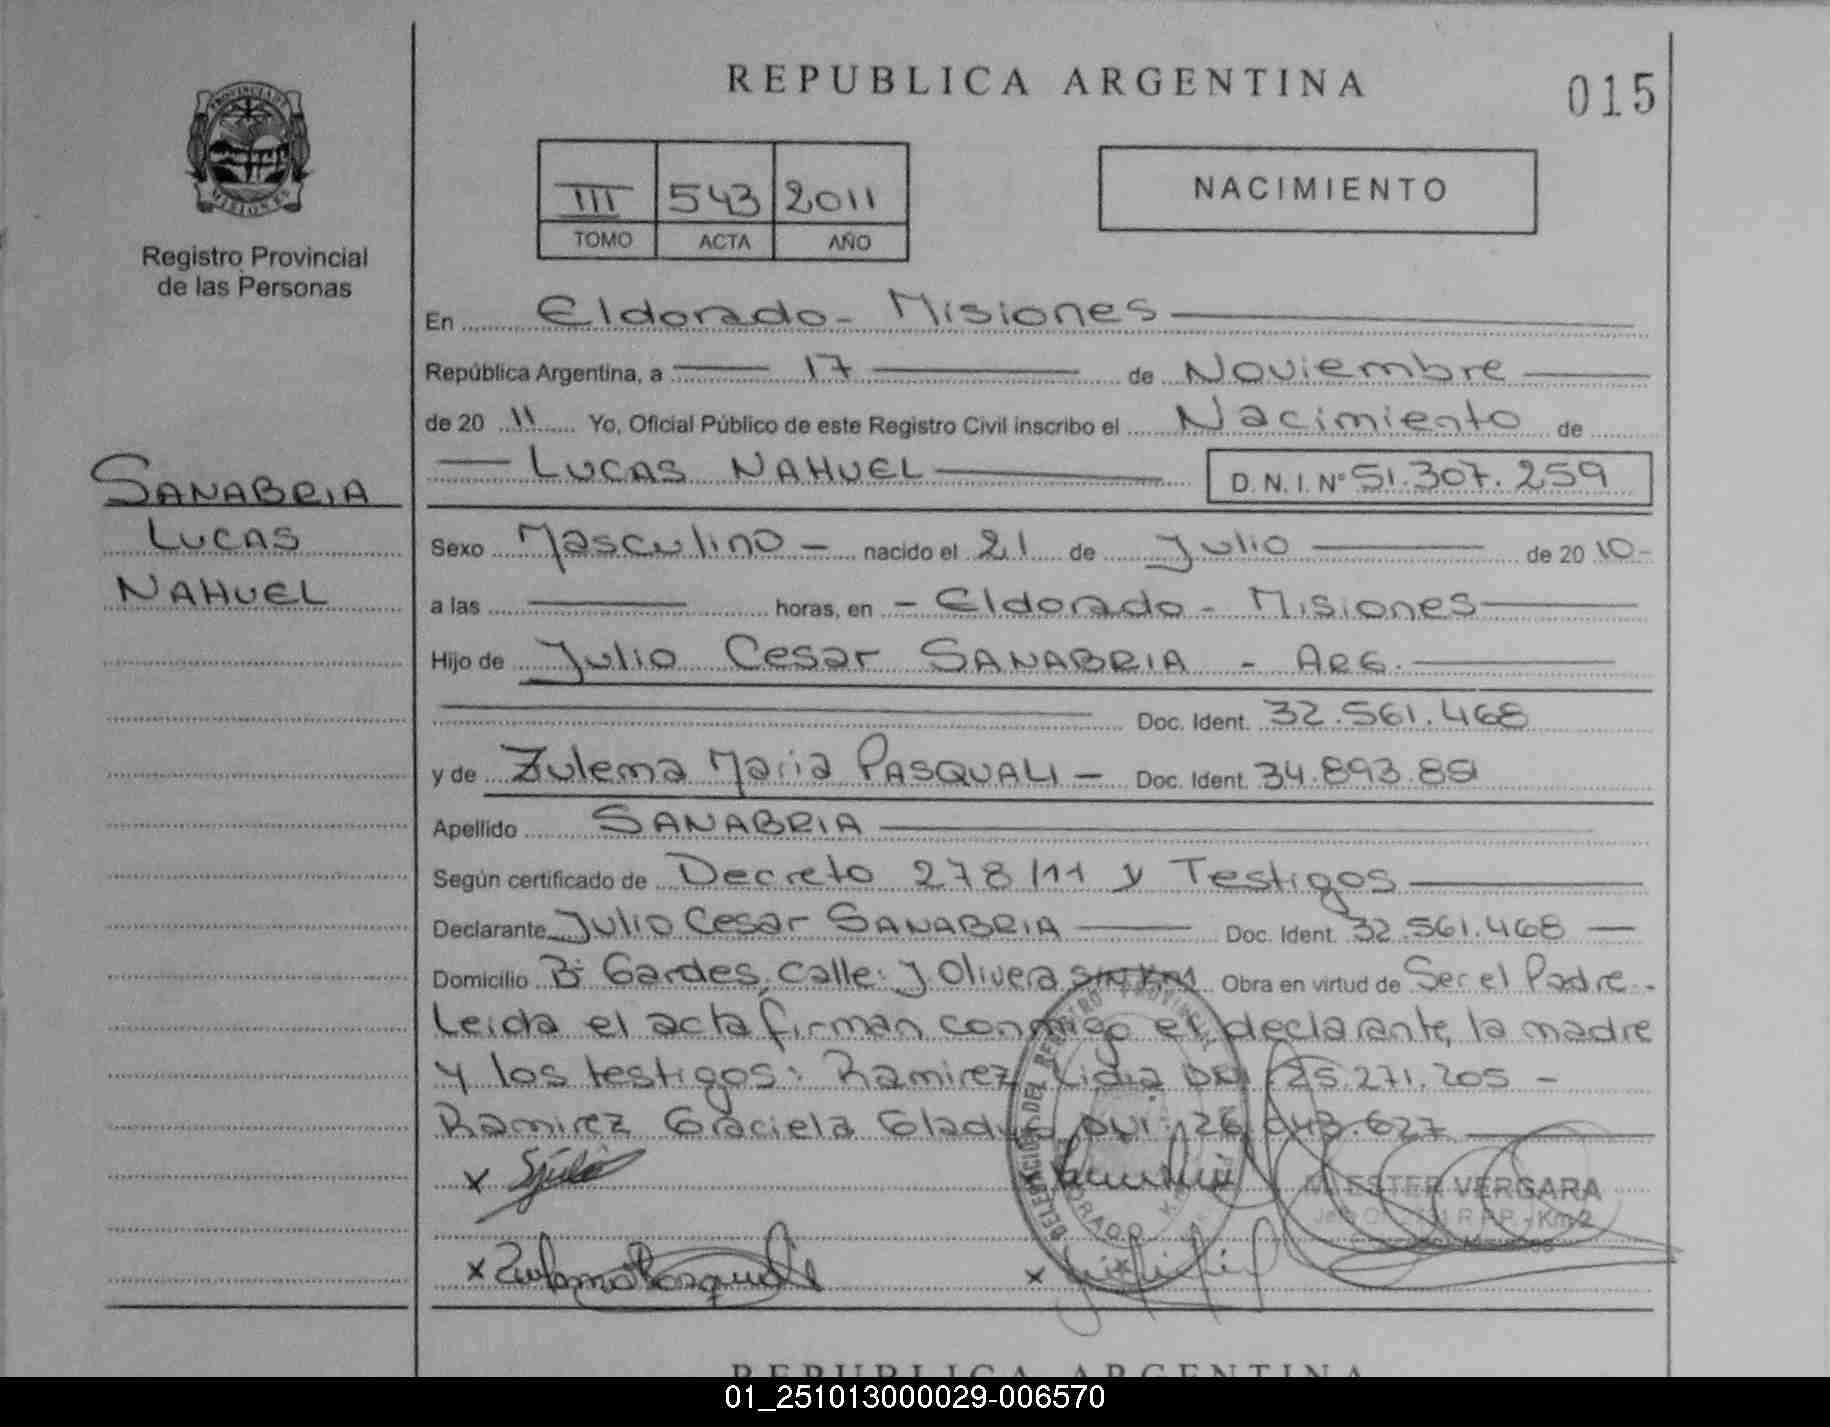 REPUBLICA ARGENTINA
015
PROVINCIA DE
MISIONES
Registro Provincial
de las Personas
III 543 2011
TOMO ACTA AÑO
NACIMIENTO
En Eldorado - Misiones
República Argentina, a 17 de Noviembre
de 20 11 Yo, Oficial Público de este Registro Civil inscribo el Nacimiento de
LUCAS NAHUEL D.N.I. Nº 51.307.259
SANABRIA
LUCAS
NAHUEL
Sexo Masculino - nacido el 21 de Julio de 20 10-
a las horas, en - Eldorado - Misiones
Hijo de Julio Cesar SANABRIA - ARG.
Doc. Ident. 32.561.468
y de Zulema Maria PASQUALI - Doc. Ident. 34.893.851
Apellido SANABRIA
Según certificado de Decreto 278/11 y Testigos
Declarante Julio Cesar SANABRIA Doc. Ident. 32.561.468
Domicilio Bº Gardes, calle: J Olivera Obra en virtud de Ser el Padre.
Leida el acta firman conmigo el declarante, la madre
y los testigos: Ramirez Lidia DNI 25.271.205 -
Ramirez Graciela Gladys DNI: 26.
DELEGACION DEL REGISTRO PROVINCIAL
x
ESTER VERGARA
Km 2
x Zulema Pasquali
x
REPUBLICA ARGENTINA
01_251013000029-006570